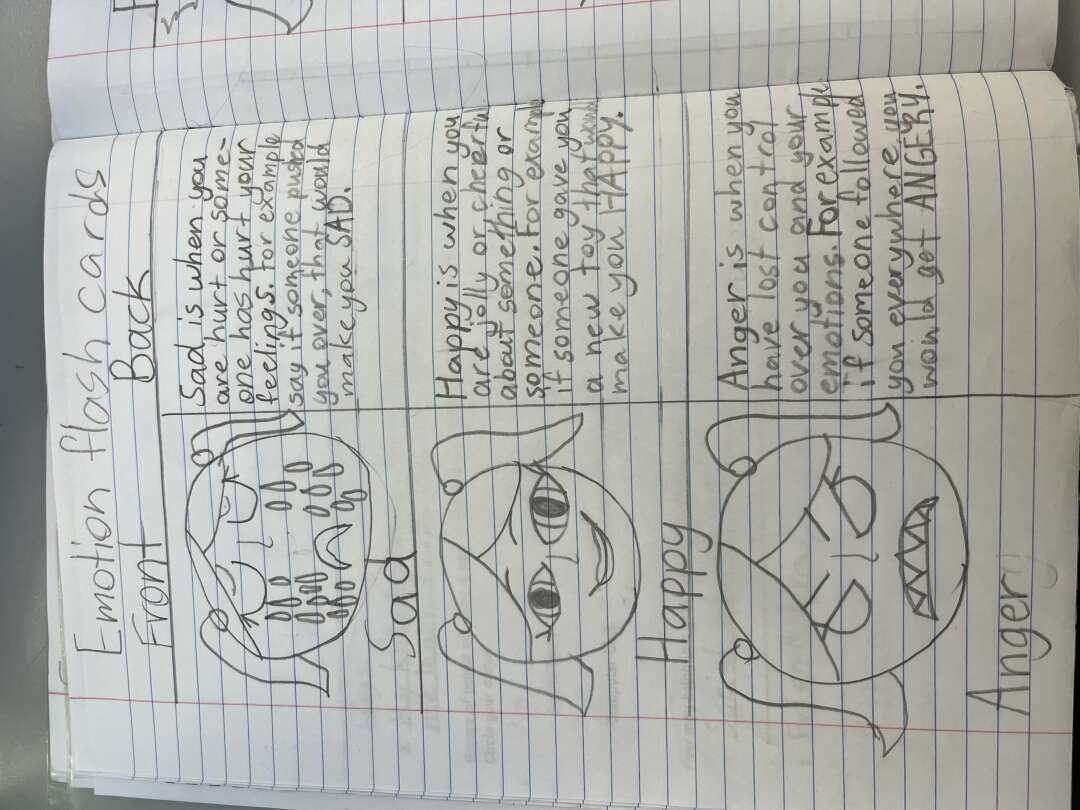 Emotion flash cards
Front
Back
Sad
Sad is when you
are hurt or some-
one has hurt your
feelings. For example
say if someone pushed
you over, that would
make you SAD.
Happy
Happy is when you
are jolly or cheerful
about something or
someone. For example
if someone gave you
a new toy that would
make you HAPPY.
Anger
Anger is when you
have lost control
over you and your
emotions. For example
if someone followed
you everywhere you
would get ANGERY.